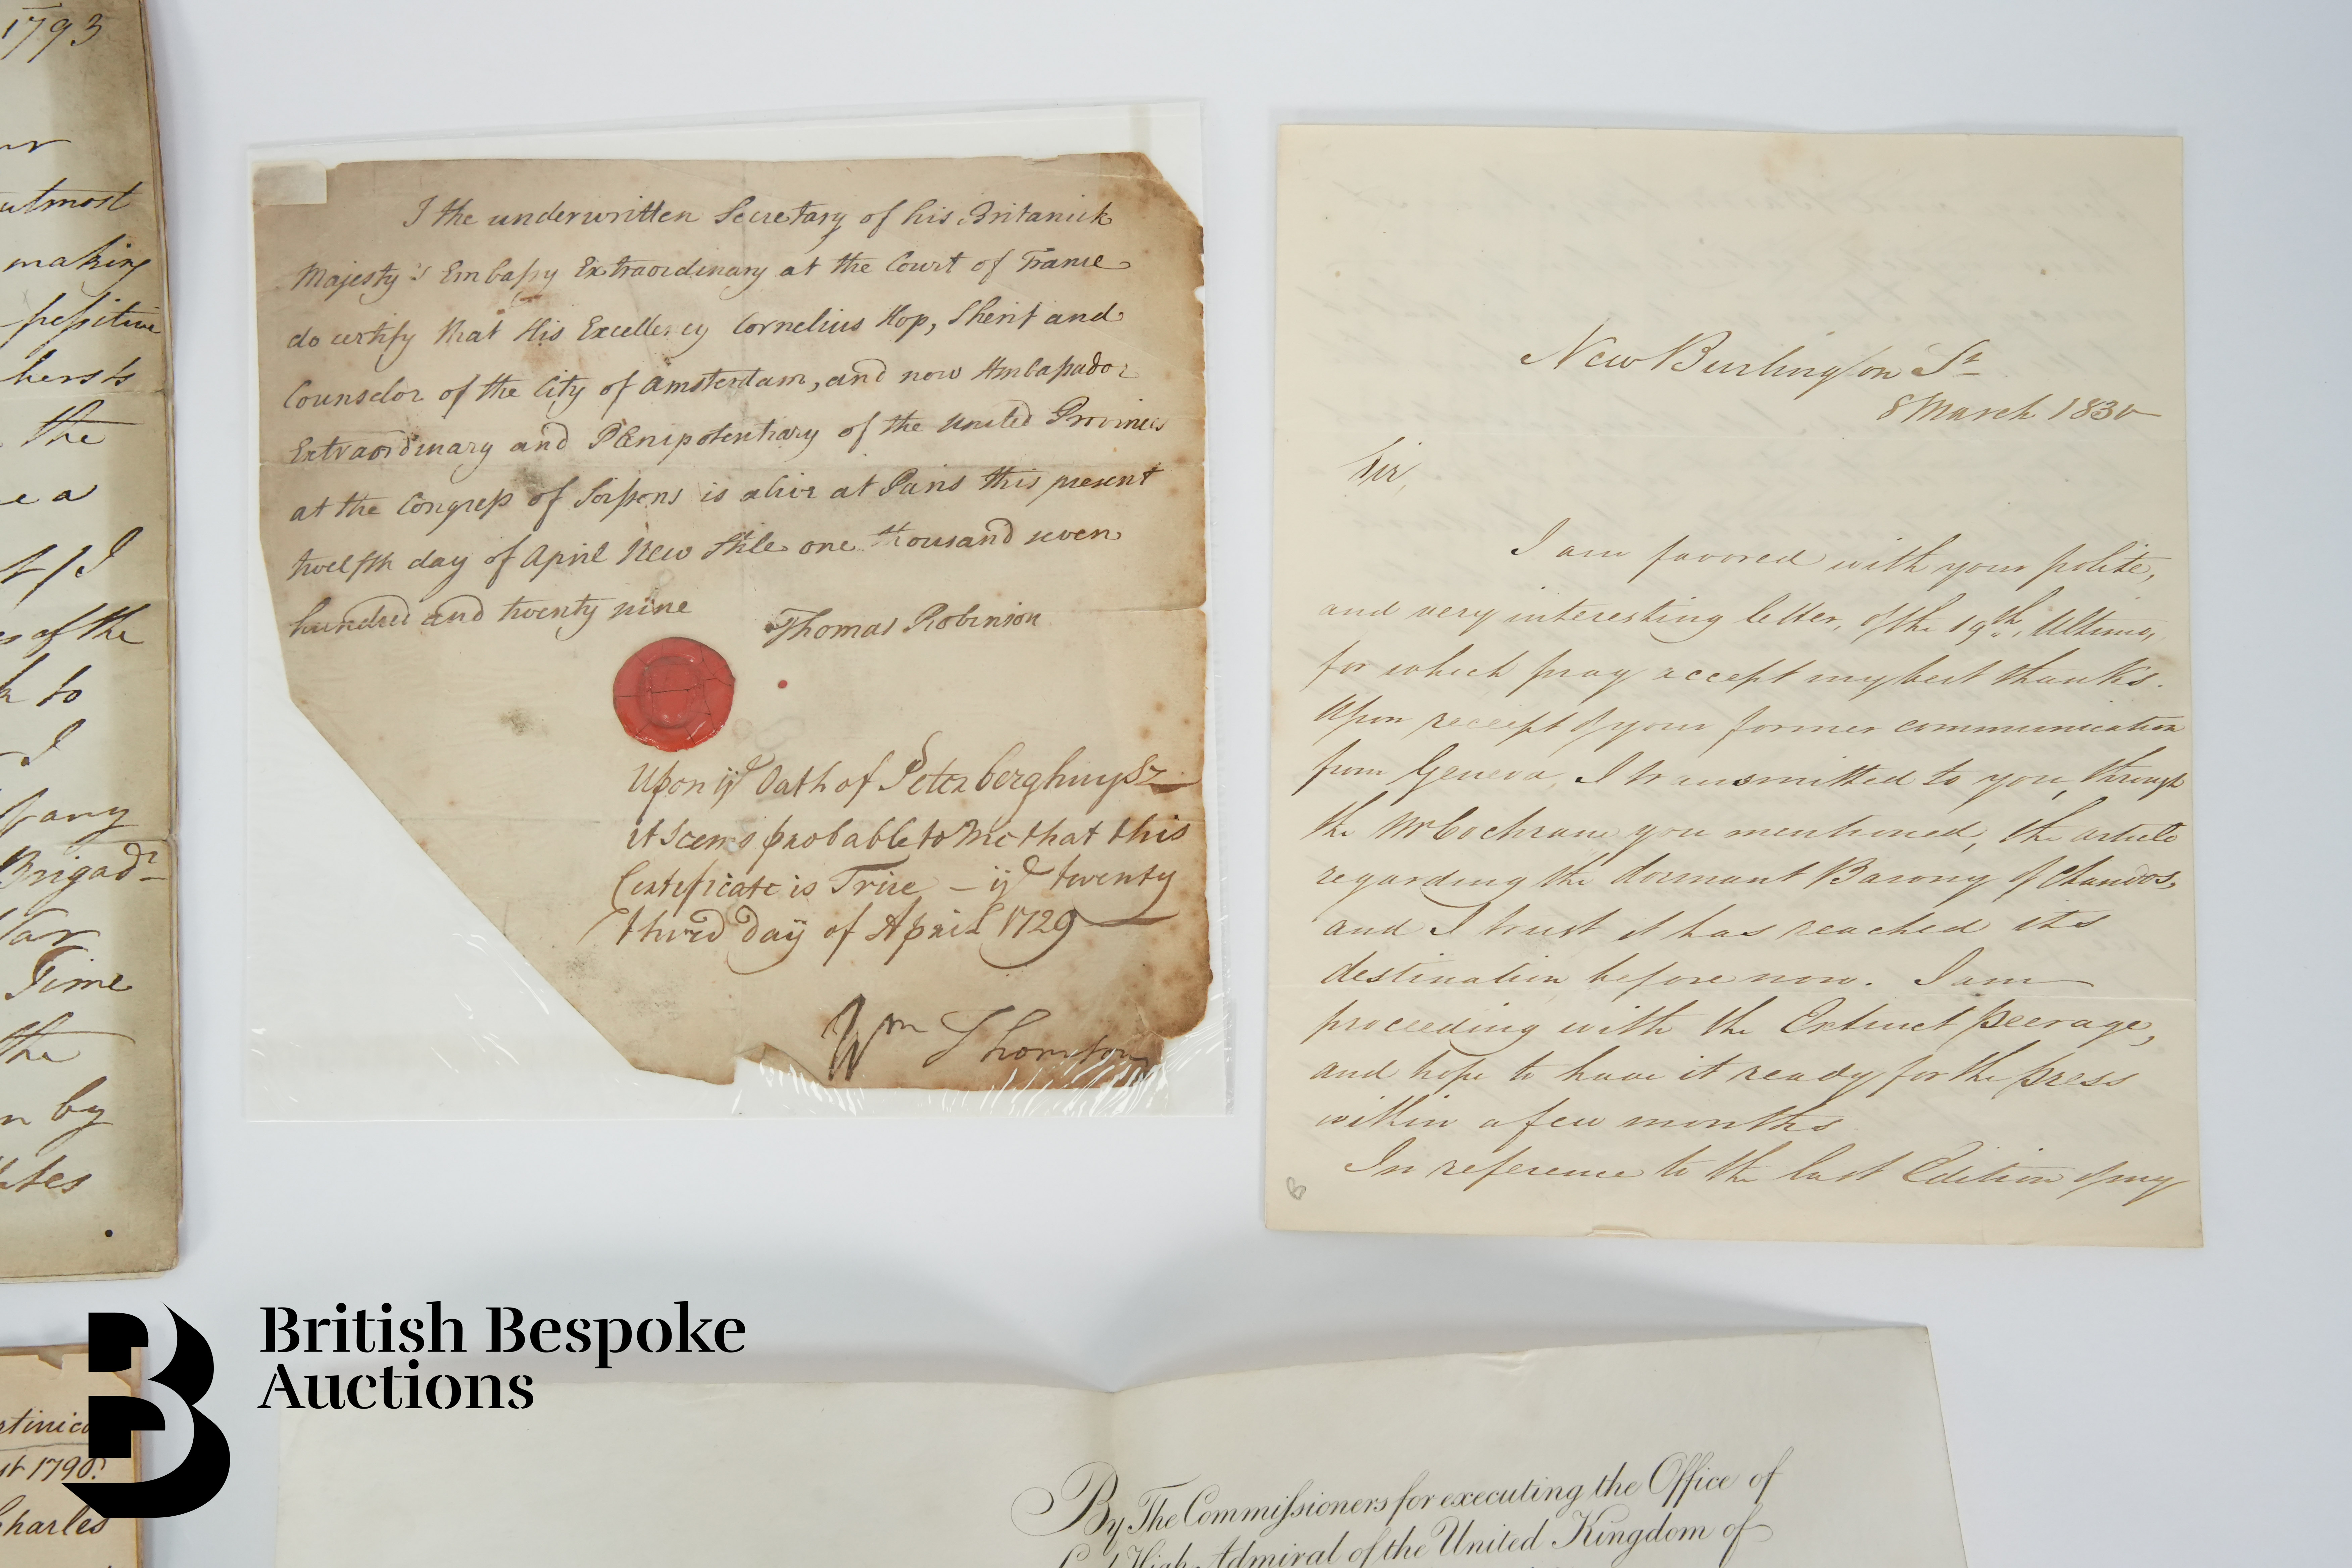 1793
ur
utmost
making
hers to
the
e a
of the
to
I
any
Brigadr
Time
the
n by
ates
I the underwritten Secretary of his Britanick
Majesty's Embassy Extraordinary at the Court of France
do certify that His Excellency Cornelius Hop, Sherif and
Counselor of the City of Amsterdam, and now Ambassador
Extraordinary and Plenipotentiary of the United Provinces
at the Congress of Soissons is alive at Paris this present
twelfth day of April New Stile one thousand seven
hundred and twenty nine
Thomas Robinson
Upon ye Oath of Peter berghuysz
it Seems probable to Me that this
Certificate is True – ye twenty
third day of April 1729
Wm Thornton
New Burlington St
8 March 1830
Sir,
I am favored with your polite,
and very interesting letter, of the 19th, Ultimo,
for which pray accept my best thanks.
Upon receipt of your former communication
from Geneva, I transmitted to you, through
the Mr Cochrane you mentioned, the article
regarding the dormant Barony of Chandos,
and I trust it has reached its
destination before now. I am
proceeding with the Extinct Peerage,
and hope to have it ready for the press
within a few months
In reference to the last Edition of my
B
British Bespoke
Auctions
rtinico
st 1790.
Charles
By The Commissioners for executing the Office of
Lord High Admiral of the United Kingdom of